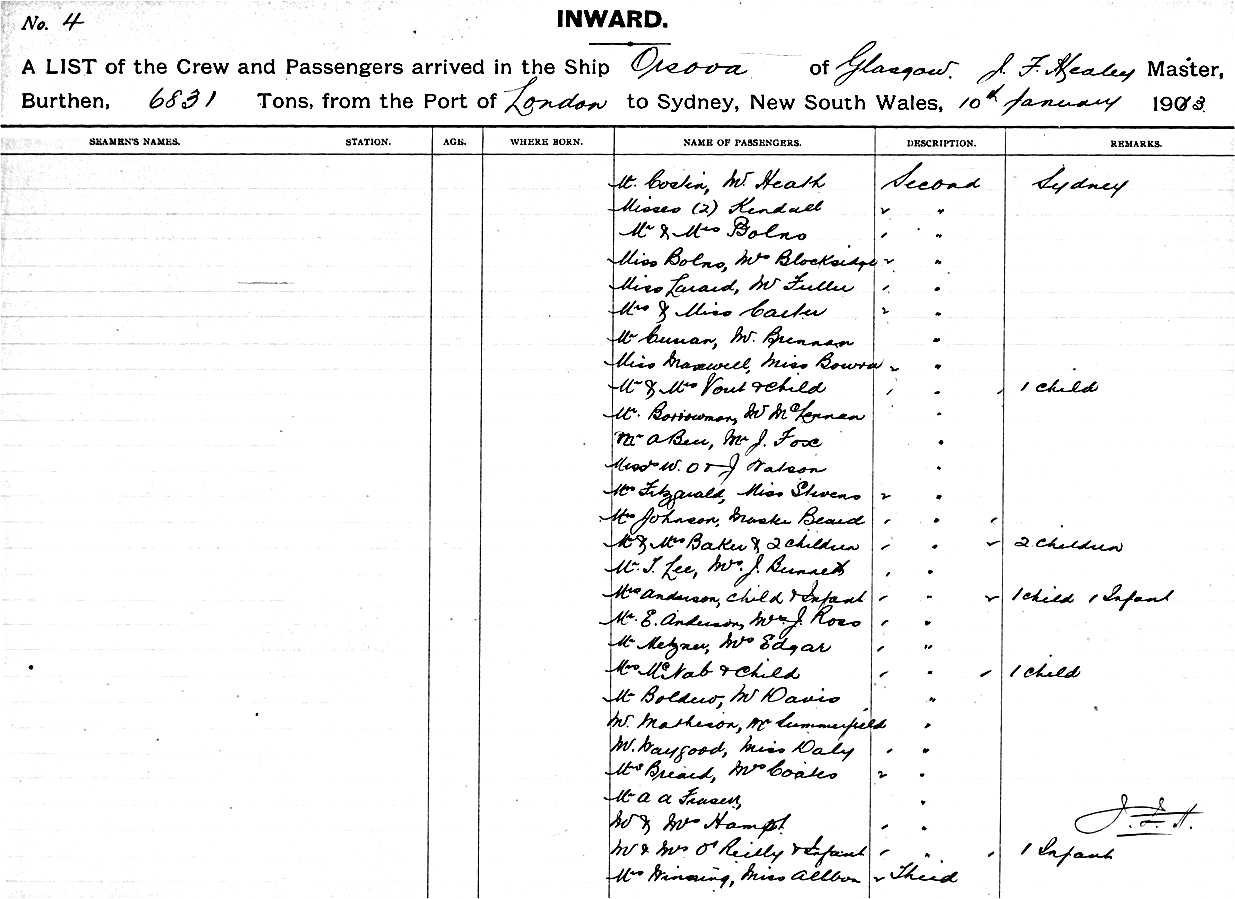 No. 4
INWARD.
A LIST of the Crew and Passengers arrived in the Ship Orsova of Glasgow. J. F. Healey Master,
Burthen, 6831 Tons, from the Port of London to Sydney, New South Wales, 10th January 1903
SEAMEN'S NAMES. STATION. AGE. WHERE BORN. NAME OF PASSENGERS. DESCRIPTION. REMARKS.
Mr. Costin, Mr Heath Second Sydney
Misses (2) Kendall " "
Mr & Mrs Bolns "
Miss Bolns, Mrs Blocksidge "
Miss Larard, Mr Fuller "
Mrs & Miss Carter "
Mr Curran, Mr. Brennan "
Miss Maxwell, Miss Bowra "
Mr & Mrs Vout & Child " 1 Child
Mr. Borrowman, Mr McLennan "
Mr A Ben, Mr J. Fox "
W. O & J Watson "
Mrs Fitzgerald, Miss Stevens "
Mrs Johnson, Master Beard "
Mr & Mrs Baker & 2 Children " 2 Children
Mr. T. Lee, Mrs. J. Bunnett "
Mrs Anderson, Child & Infant " 1 Child 1 Infant
Mr. E. Anderson, Mrs J. Ross "
Mr Metzner, Mrs Edgar "
Mrs McNab & Child " 1 Child
Mr Boldero, Mr Davis "
Mr. Matheson, Mr Summerfield "
Mr. Haygood, Miss Daly "
Mrs Breard, Mrs Coates "
Mr A A Fraser, "
Mr & Mrs Hampt "
J. F. H.
Mr & Mrs O'Reilly & Infant " 1 Infant
Mrs Winning, Miss Allbon Third